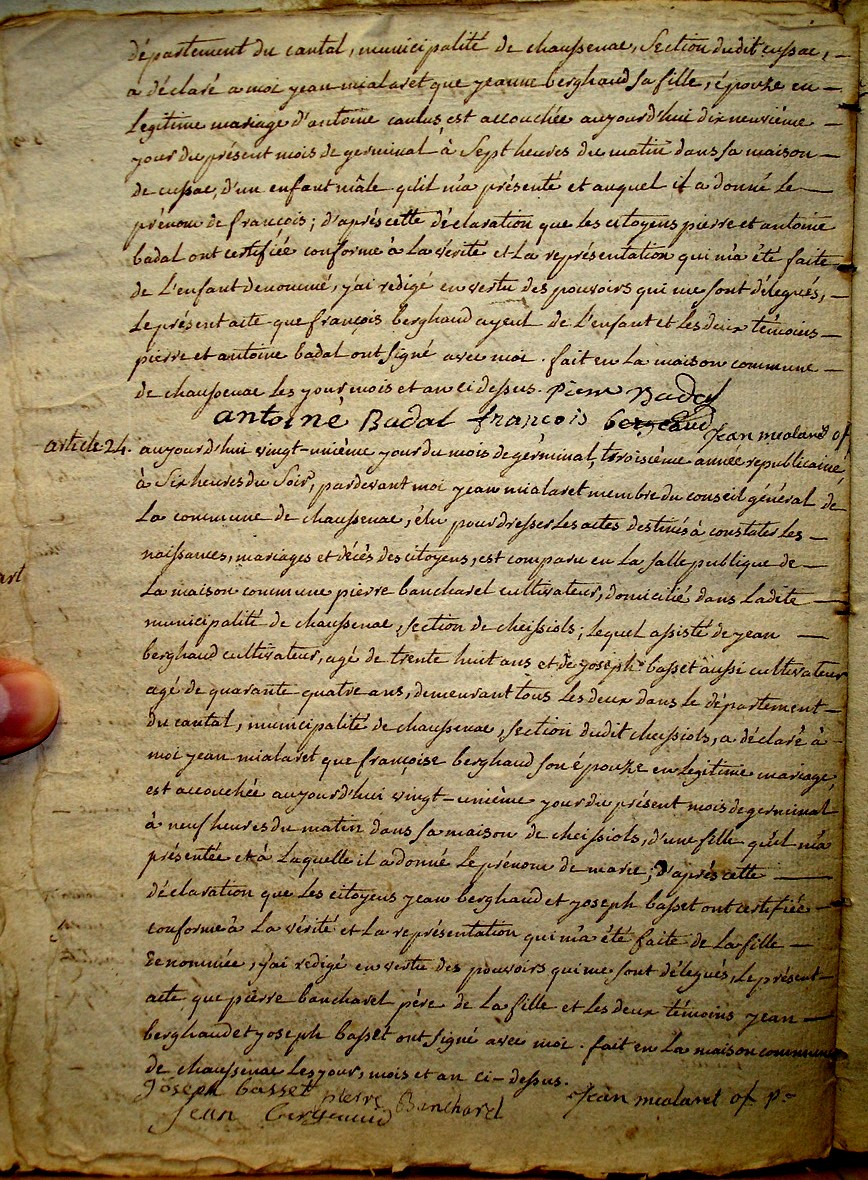 département du cantal, municipalité de chaussenac, Section dudit cussac,
a déclaré a moi jean mialaret que jeanne berghaud sa fille, épouze en
Legitime mariage d'antoine est accouchée aujourd'hui dix neuvième
jour du présent mois de germinal à Sept heures du matin dans sa maison
de cussac, d'un enfant mâle qu'il m'a présenté et auquel il a donné le
prénom de françois; d'après cette déclaration que les citoyens pierre et antoine
badal ont certifiée conforme à la vérité et la représentation qui m'a été faite
de L'enfant denommé, j'ai redigé en vertu des pouvoirs qui me sont délegués,
Le présent acte que françois berghaud ayeul de L'enfant et les deux témoins
pierre et antoine badal ont signé avec moi. fait en la maison commune
de chaussenac les jour mois et an ci dessus. Pierre Badal
antoine Badal françois bergeaud Jean mialaret of
article 24. aujourd'hui vingt-unième jour du mois de germinal, troisième année républicaine,
à Six heures du Soir, pardevant moi jean mialaret membre du conseil général de
La commune de chaussenac, élu pour dresser les actes destinés à constater les
naissances, mariages et décès des citoyens, est comparu en la salle publique de
La maison commune pierre bancharel cultivateur, domicilié dans ladite
municipalité de chaussenac, section de cheissiols; lequel assisté de jean
berghaud cultivateur, agé de trente huit ans et de joseph basset aussi cultivateur
agé de quarante quatre ans, demeurant tous les deux dans le département
du cantal, municipalité de chaussenac, section dudit cheissiols, a déclaré à
moi jean mialaret que françoise berghaud son épouze en legitime mariage,
est accouchée aujourd'hui vingt-unième jour du présent mois de germinal
à neuf heures du matin dans sa maison de cheissiols, d'une fille qu'il m'a
présentée et à Laquelle il a donné le prénom de marie; d'après cette
déclaration que les citoyens jean berghaud et joseph basset ont certifiée
conforme à la vérité et la représentation qui m'a été faite de la fille
denommée, j'ai redigé en vertu des pouvoirs qui me sont délegués, Le présent
acte que pierre bancharel père de la fille et les deux témoins jean
berghaud et joseph basset ont signé avec moi. fait en la maison commune
de chaussenac les jour, mois et an ci-dessus.
Joseph basset pierre Bancharel Jean mialaret of p
Jean bergeaud